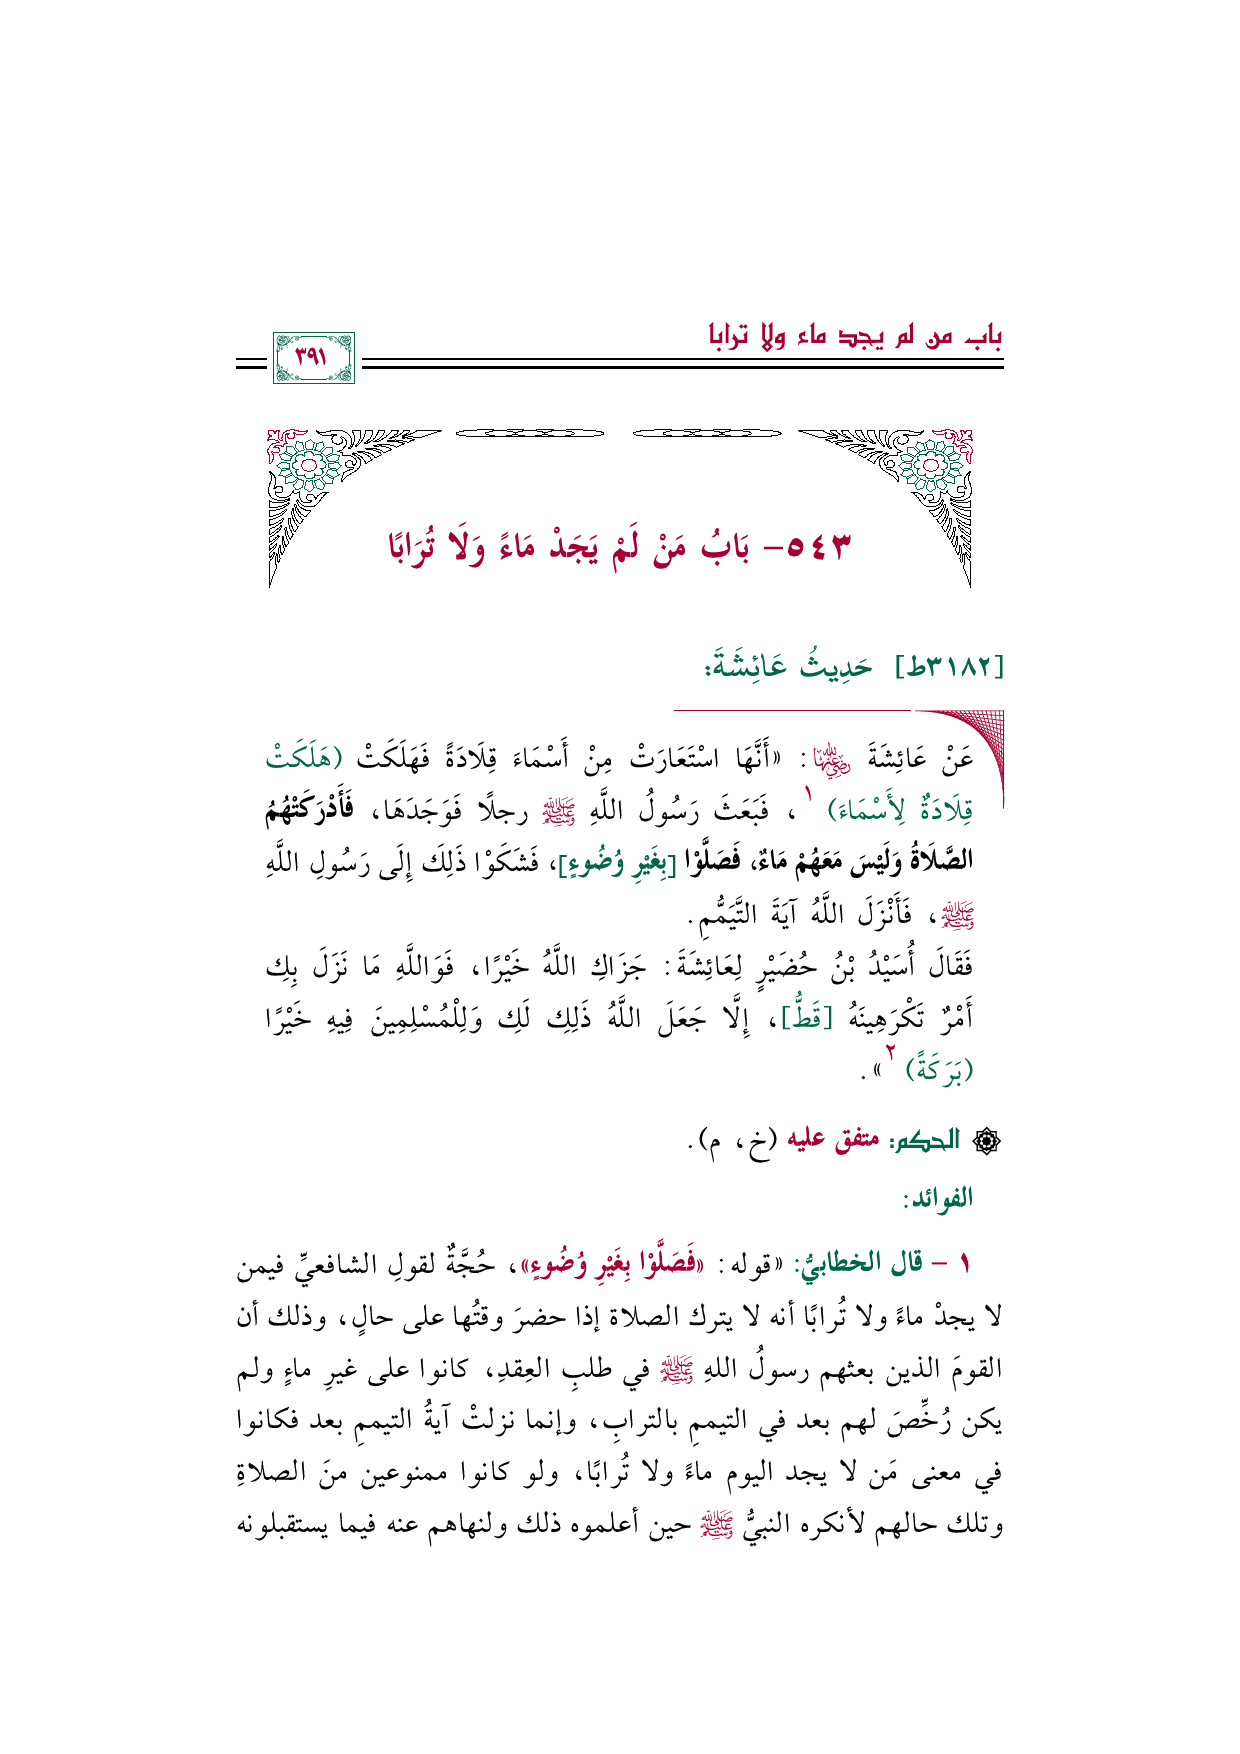 باب من لم يجد ماء ولا ترابا
٣٩١
٥٤٣- بَابُ مَنْ لَمْ يَجَدْ مَاءً وَلَا تُرَابًا
[٣١٨٢ط] حَدِيثُ عَائِشَةَ:
عَنْ عَائِشَةَ رضي الله عنها: «أَنَّهَا اسْتَعَارَتْ مِنْ أَسْمَاءَ قِلَادَةً فَهَلَكَتْ (هَلَكَتْ
قِلَادَةٌ لِأَسْمَاءَ) ١، فَبَعَثَ رَسُولُ اللَّهِ ﷺ رجلًا فَوَجَدَهَا، فَأَدْرَكَتْهُمُ
الصَّلَاةُ وَلَيْسَ مَعَهُمْ مَاءٌ، فَصَلَّوْا [بِغَيْرِ وُضُوءٍ]، فَشَكَوْا ذَلِكَ إِلَى رَسُولِ اللَّهِ
ﷺ، فَأَنْزَلَ اللَّهُ آيَةَ التَّيَمُّمِ.
فَقَالَ أُسَيْدُ بْنُ حُضَيْرٍ لِعَائِشَةَ: جَزَاكِ اللَّهُ خَيْرًا، فَوَاللَّهِ مَا نَزَلَ بِكِ
أَمْرٌ تَكْرَهِينَهُ [قَطُّ]، إِلَّا جَعَلَ اللَّهُ ذَلِكِ لَكِ وَلِلْمُسْلِمِينَ فِيهِ خَيْرًا
(بَرَكَةً) ٢».
الحكم: متفق عليه (خ، م).
الفوائد:
١ - قال الخطابيُّ: «قوله: «فَصَلَّوْا بِغَيْرِ وُضُوءٍ»، حُجَّةٌ لقولِ الشافعيِّ فيمن
لا يجدْ ماءً ولا تُرابًا أنه لا يترك الصلاة إذا حضرَ وقتُها على حالٍ، وذلك أن
القومَ الذين بعثهم رسولُ اللهِ ﷺ في طلبِ العِقدِ، كانوا على غيرِ ماءٍ ولم
يكن رُخِّصَ لهم بعد في التيممِ بالترابِ، وإنما نزلتْ آيةُ التيممِ بعد فكانوا
في معنى مَن لا يجد اليوم ماءً ولا تُرابًا، ولو كانوا ممنوعين منَ الصلاةِ
وتلك حالهم لأنكره النبيُّ ﷺ حين أعلموه ذلك ولنهاهم عنه فيما يستقبلونه